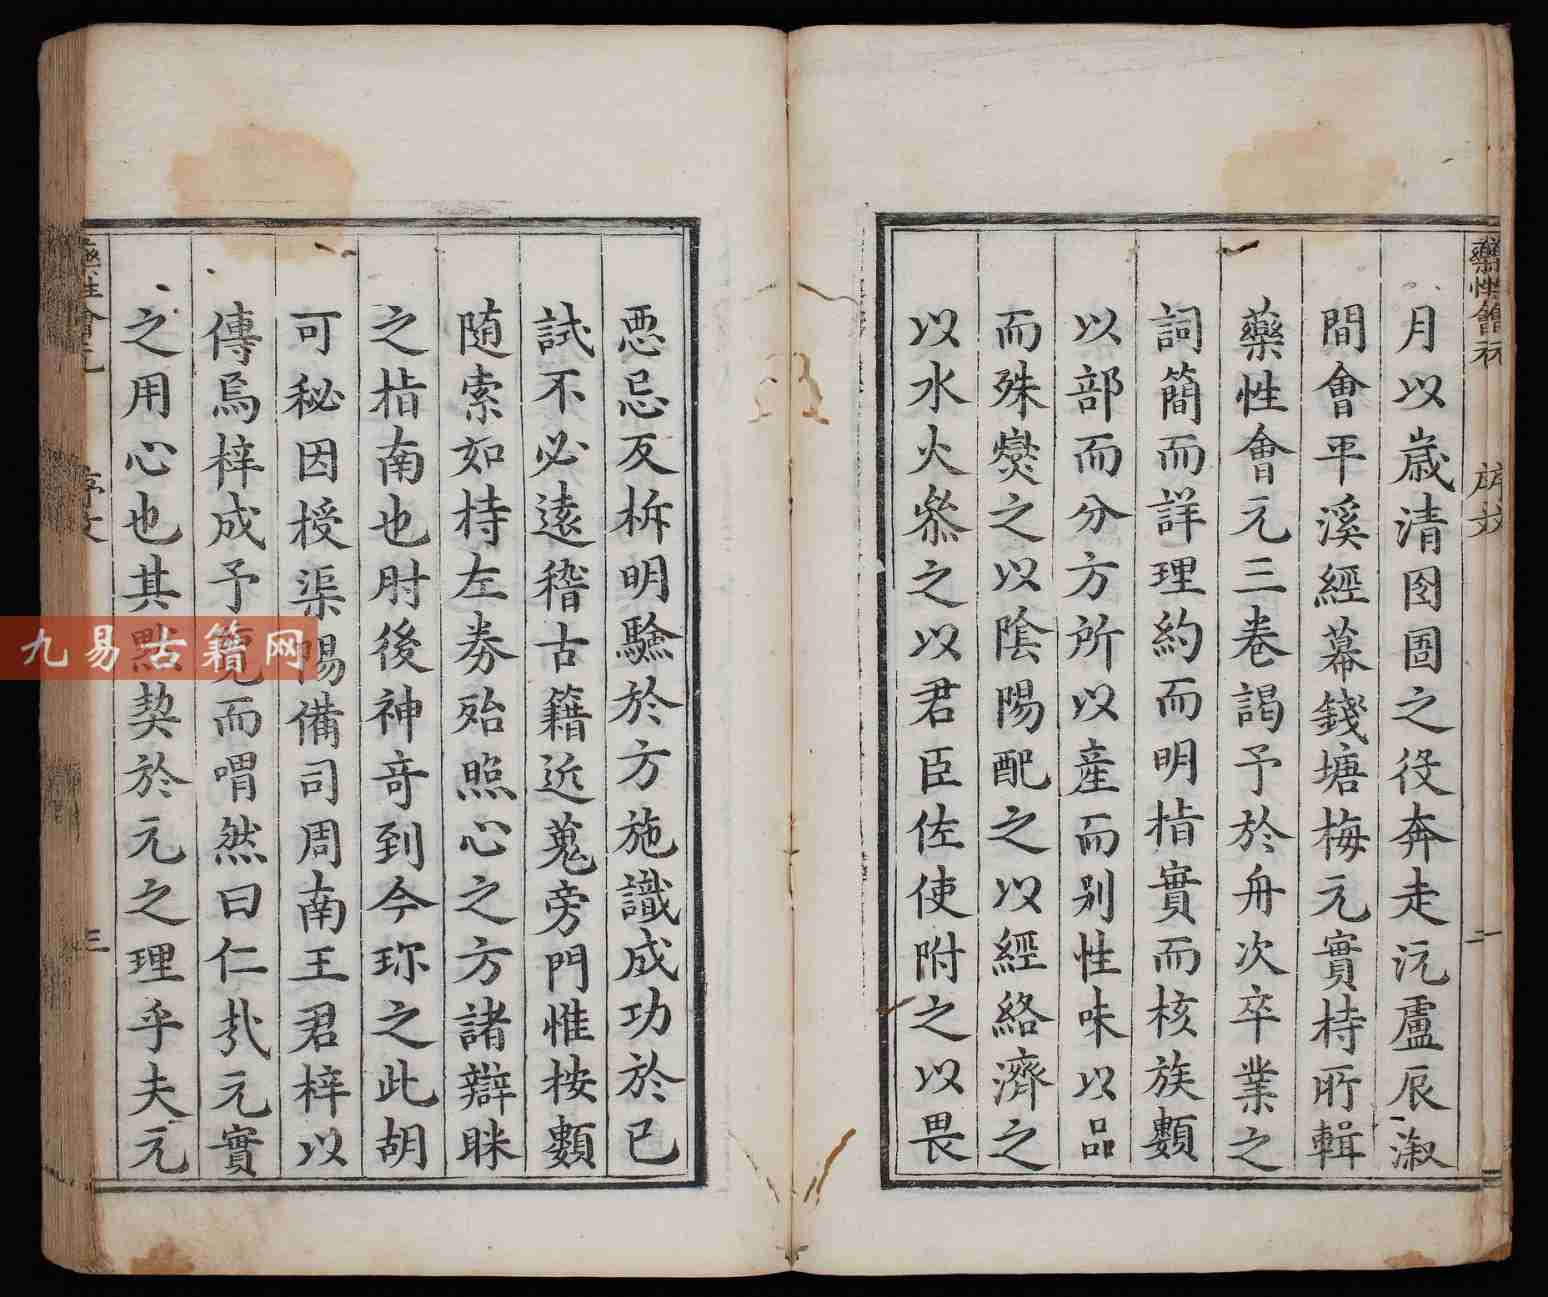 藥性會元
序文
二
月以歲清囹圄之役奔走沅盧辰溆
間會平溪經幕錢塘梅元實持所輯
藥性會元三卷謁予於舟次卒業之
詞簡而詳理約而明指實而核族類
以部而分方所以産而别性味以品
而殊爕之以陰陽配之以經絡濟之
以水火叅之以君臣佐使附之以畏
惡忌反析明驗於方施識成功於已
試不必遠稽古籍近蒐旁門惟按類
随索如持左券殆照心之方諸辯眯
之指南也肘後神奇到今珎之此胡
可秘因授渠陽備司周南王君梓以
傳焉梓成予覽而喟然曰仁㢤元實
之用心也其默契於元之理乎夫元
藥性會元
序文
三
九易古籍网